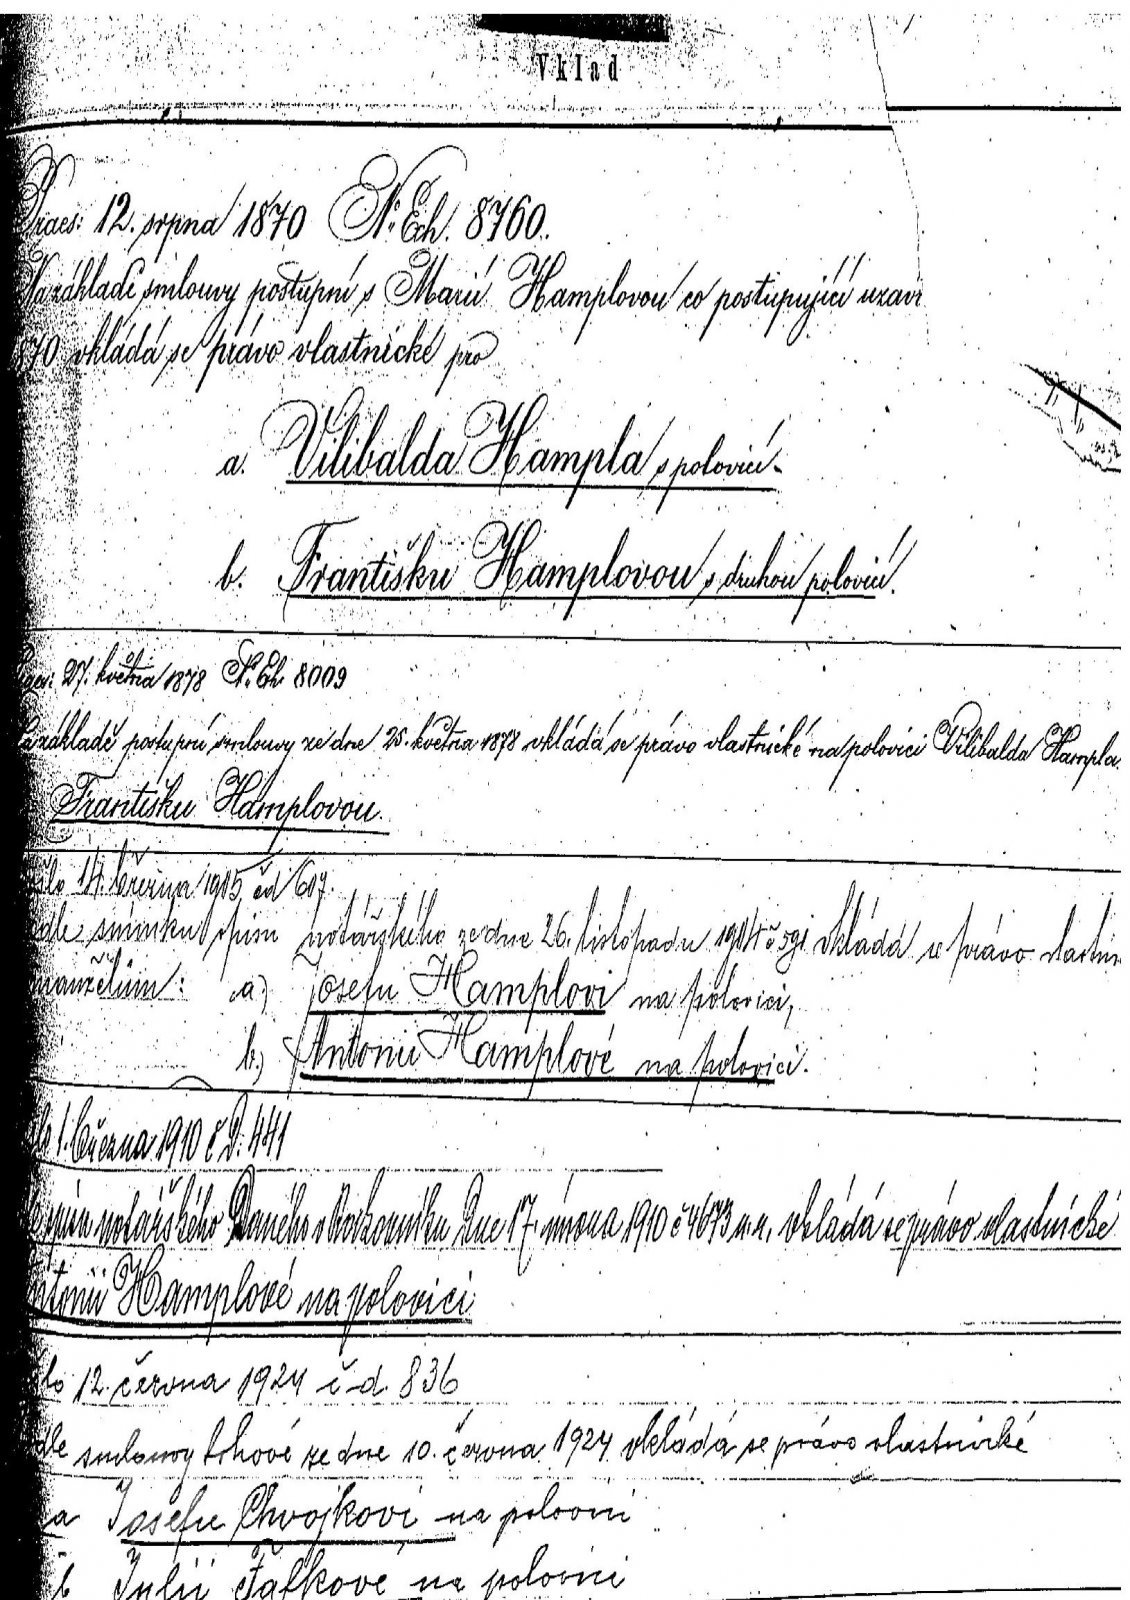 Vklad
Praes: 12. srpna 1870 N: Exh. 8760.
Na základě smlouvy postupní s Marií Hamplovou co postupující uzavř
870 vkládá se právo vlastnické pro
a. Vilibalda Hampla s polovicí.
b. Františku Hamplovou s druhou polovicí.
27. května 1878 N. Exh. 8009
základě postupní smlouvy ze dne 25. května 1878 vkládá se právo vlastnické na polovici Vilibalda Hampla
Františku Hamplovou.
14. března 1905 čd 607.
dle snímku spisu notářského ze dne 26. listopadu 1904 č 591 vkládá se právo vlastni
manželům: a.) Josefu Hamplovi na polovici,
b.) Antonii Hamplové na polovici.
1. března 1910 č D. 441
spisu notářského Daného v Dne 17. února 1910 č 4673 vkládá se právo vlastnické
ntonii Hamplové na polovici
lo 12. června 1924 č-d. 836
dle smlouvy trhové ze dne 10. června 1924 vkládá se právo vlastnické
a Josefu Chvojkovi na polovici
b Julii Fafkové na polovici